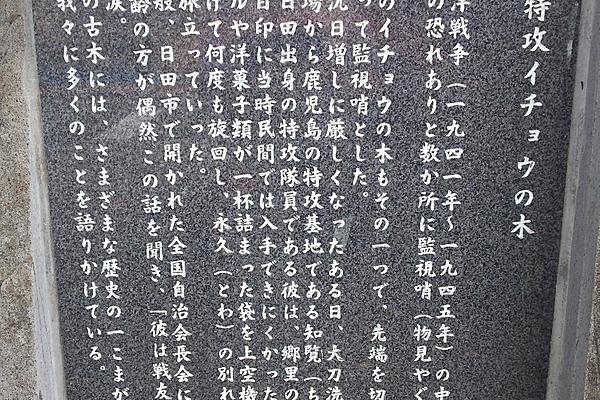 特攻イチョウの木
洋戦争(一九四一年~一九四五年)の中
の恐れありと数か所に監視哨(物見やぐ
のイチョウの木もその一つで、先端を切
って監視哨とした。
況日増しに厳しくなったある日、大刀洗
場から鹿児島の特攻基地である知覧(ち
日田出身の特攻隊員である彼は、郷里の
目印に当時民間では入手できにくかった
ルや洋菓子類が一杯詰まった袋を上空機
けて何度も旋回し、永久(とわ)の別れ
旅立っていった。
般、日田市で開かれた全国自治会長会に
齢の方が偶然この話を聞き、「彼は戦友
涙。
の古木には、さまざまな歴史の一こまが
我々に多くのことを語りかけている。